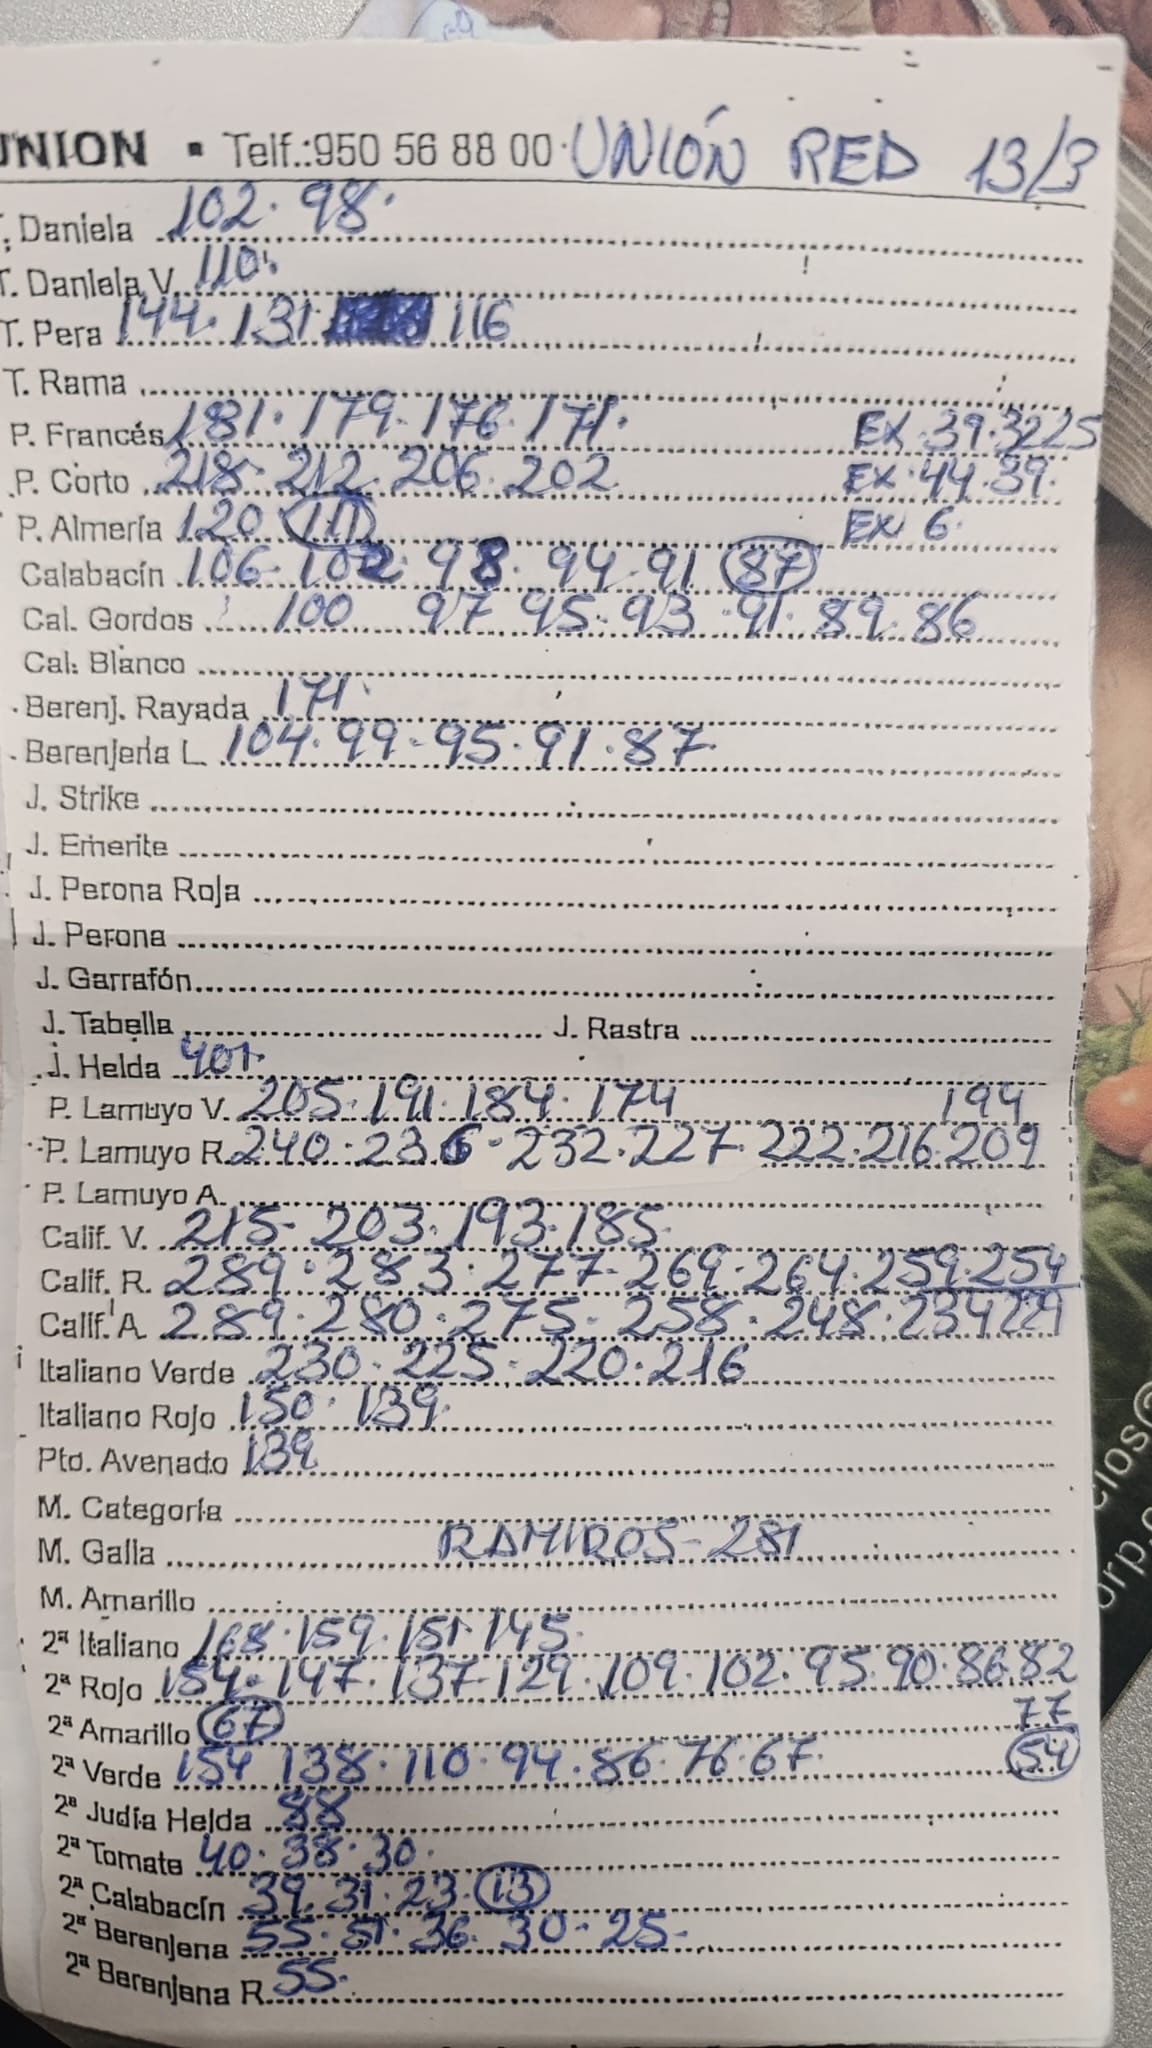 UNION • Telf.:950 56 88 00 · UNIÓN RED 13/3
T. Daniela 102. 98.
T. Daniela V. 110.
T. Pera 144. 131 116
T. Rama
P. Francés 181. 179. 176. 171. EX 39.32 25
P. Corto 218. 212. 206. 202 EX 44.39.
P. Almería 120 (111) EX 6.
Calabacín 106. 102. 98. 94. 91 (87)
Cal. Gordos 100 97 95. 93. 91. 89. 86
Cal. Blanco
Berenj. Rayada 171.
Berenjena L. 104. 99. 95. 91. 87.
J. Strike
J. Emerite
J. Perona Roja
J. Perona
J. Garrafón
J. Tabella J. Rastra
J. Helda 401.
P. Lamuyo V. 205. 191. 184. 174 194
P. Lamuyo R. 240. 236. 232. 227. 222. 216. 209
P. Lamuyo A.
Calif. V. 215. 203. 193. 185.
Calif. R. 289. 283. 277. 269. 264. 259. 254
Calif. A. 289. 280. 275. 258. 248. 234 229
Italiano Verde 230. 225. 220. 216
Italiano Rojo 150. 139.
Pto. Avenado 139
M. Categoría
M. Galla RAMIROS-281
M. Amarillo
2ª Italiano 168. 159. 151. 145.
2ª Rojo 154. 147. 137. 129. 109. 102. 95. 90. 86. 82
77
2ª Amarillo (67)
2ª Verde 154 138. 110. 94. 86. 76. 67. (54)
2ª Judía Helda 88
2ª Tomate 40. 38. 30.
2ª Calabacín 39. 31. 23. (13)
2ª Berenjena 55. 51. 36. 30. 25.
2ª Berenjena R. 55.